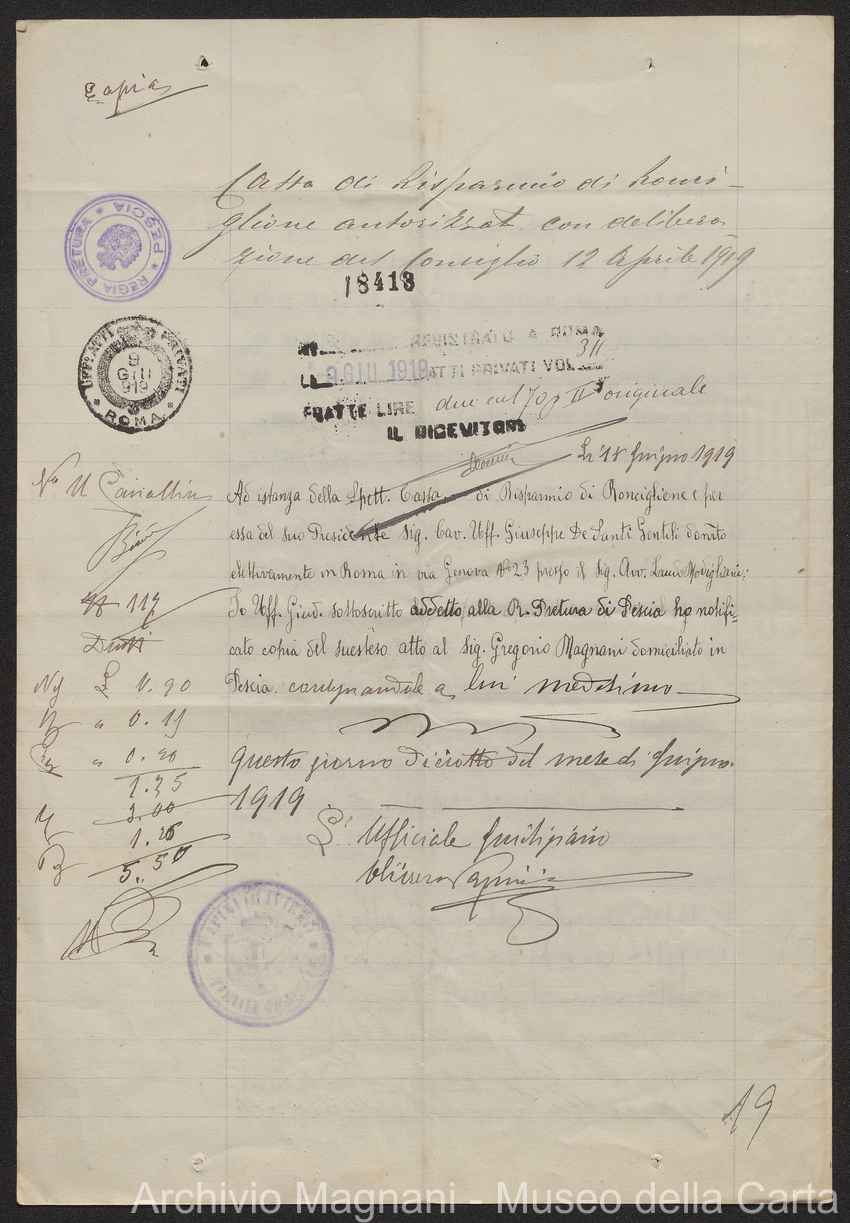 Copia
Cassa di Risparmio di Ronci-
glione autorizzat con delibera
zione del Consiglio 12 Aprile 1919
18418
REGIA PRETURA * PESCIA *
N. REGISTRATO A ROMA
311
LI 9 GIU 1919 ATTI PRIVATI VOL.
ESATTE LIRE due originale
IL RICEVITORE
UFF° ATTI PRIVATI
9
GIU
919
* ROMA *
Li 18 giugno 1919
Ad istanza della Spett. Cassa di Risparmio di Ronciglione e per
essa del suo Presidente Sig. Cav. Uff. Giuseppe De Santi Gentili domto
elettivamente in Roma in via Genova N° 23 presso il Sig. Avv. Lando Modigliani:
Io Uff. Giud. sottoscritto addetto alla R. Pretura di Pescia ho notifi-
cato copia del suesteso atto al Sig. Gregorio Magnani domiciliato in
Pescia. consegnandole a lui medesimo
questo giorno diciotto del mese di giugno
1919
L' Ufficiale giudiziario
117
Dritti
£ 0.90
" 0.15
" 0.20
1.25
3.00
1.25
5.50
19
Archivio Magnani - Museo della Carta